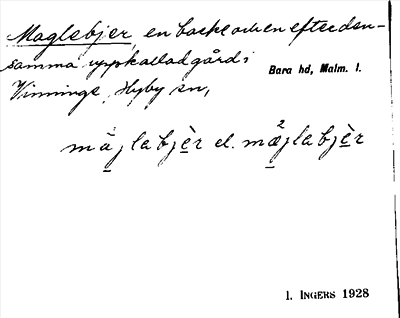 Maglebjer, en backe och en efter den-
samma uppkallad gård i
Vinninge, Hyby sn,
Bara hd, Malm. l.
màjlabjèr el. mæ̀jlabjèr
I. INGERS 1928